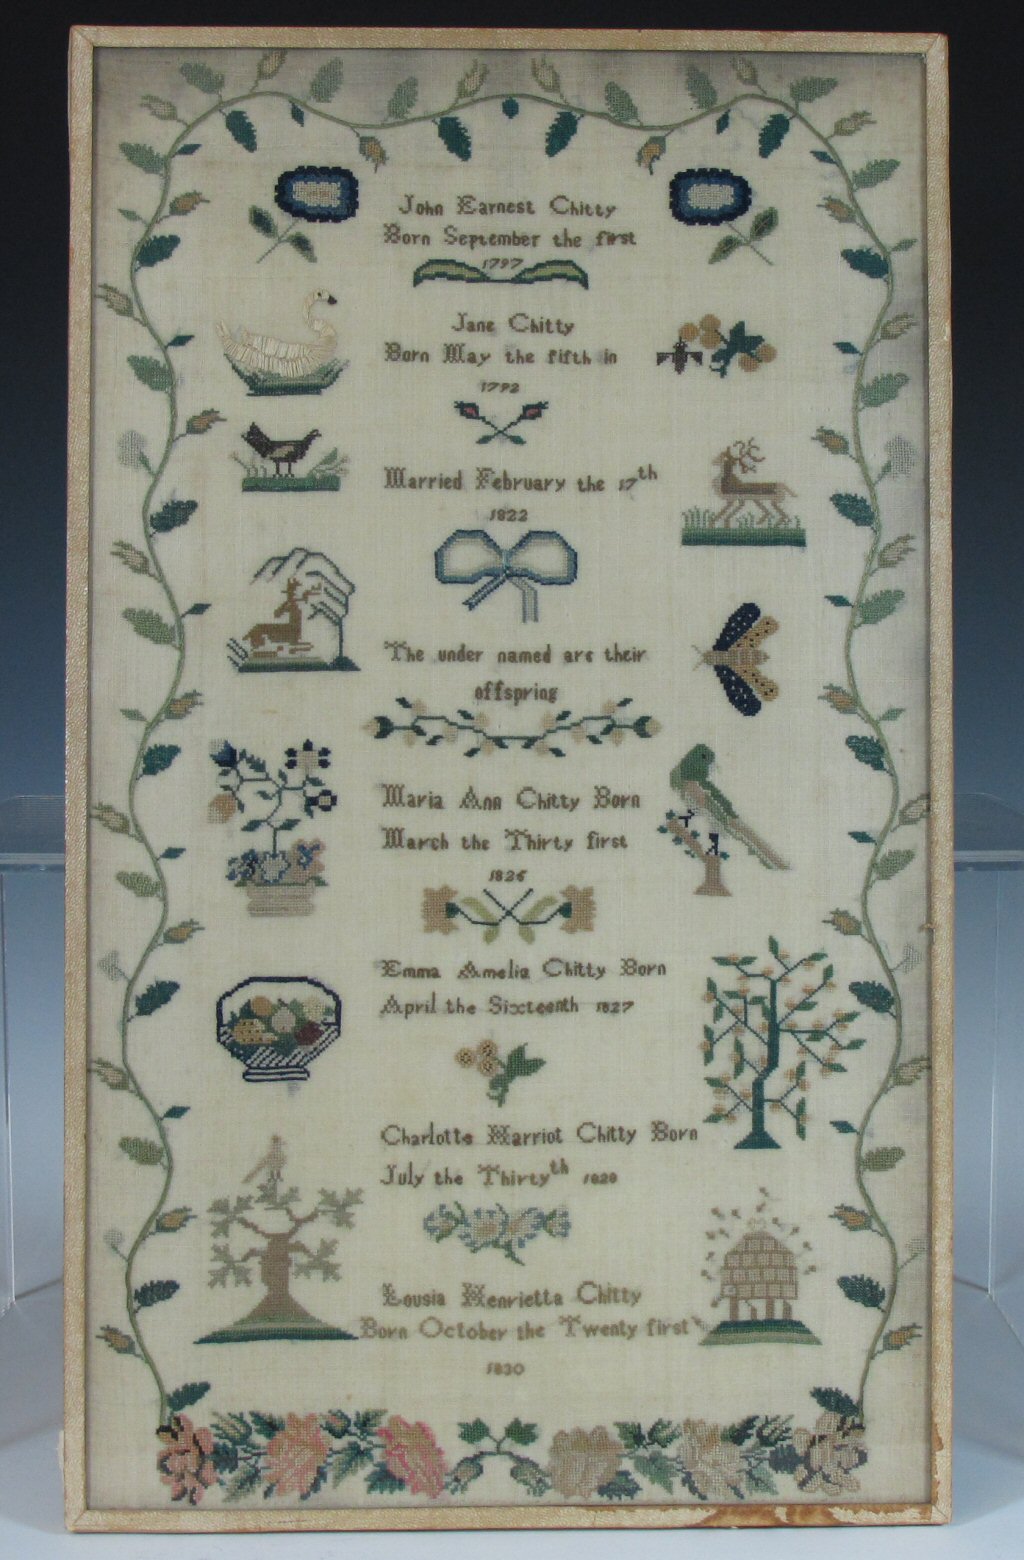 John Earnest Chitty
Born September the first
1797
Jane Chitty
Born May the fifth in
1792
Married February the 17th
1822
The under named are their
offspring
Maria Ann Chitty Born
March the Thirty first
1826
Emma Amelia Chitty Born
April the Sixteenth 1827
Charlotte Harriot Chitty Born
July the Thirtyth
Lousia Henrietta Chitty
Born October the Twenty first
1830